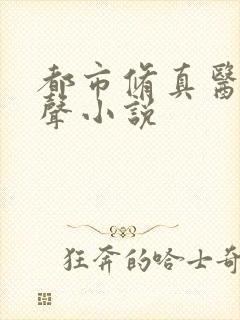 都市脩真醫
聲小説
狂奔的哈士奇